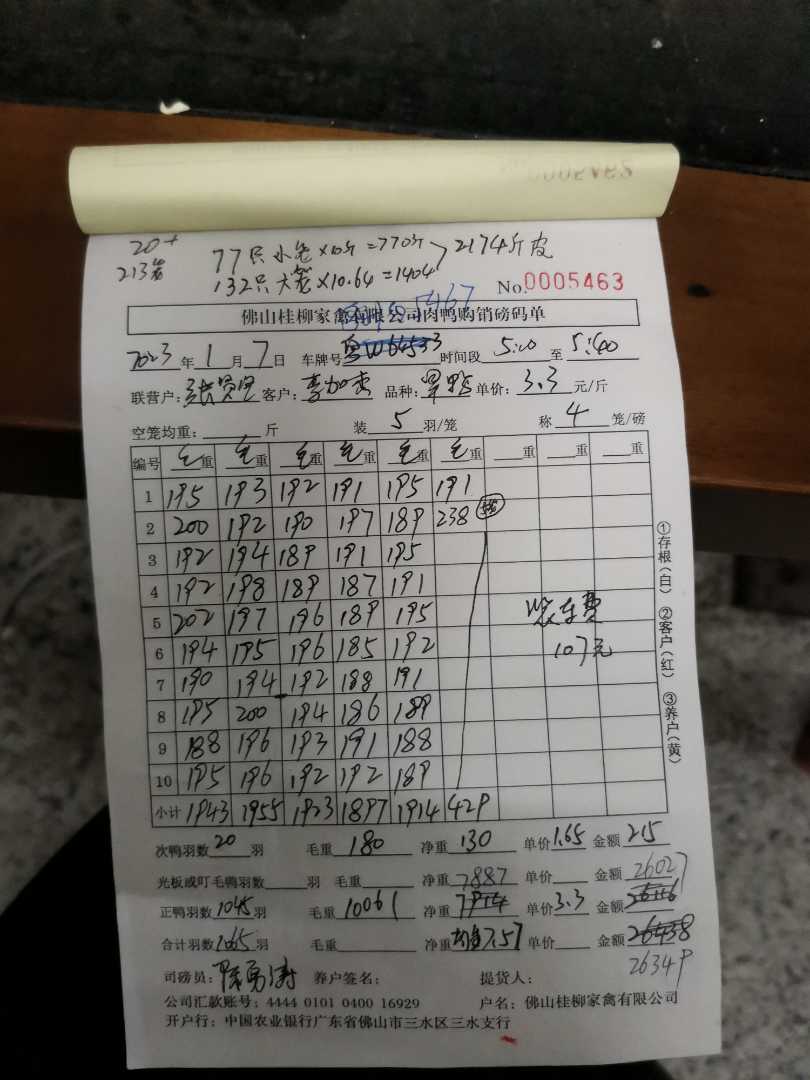 20+
213
77只小笼×10斤=770斤
2174斤皮
132只大笼×10.64=1404
No.0005463
佛山桂柳家禽有限公司肉鸭购销磅码单
5467
2023年1月7日 车牌号 时间段 5:00 至 5:40
联营户: 客户: 品种: 单价:3.3元/斤
空笼均重: 斤 装 5 羽/笼 称 4 笼/磅
编号 毛重 毛重 毛重 毛重 毛重 毛重 重 重 重
1 195 193 192 191 195 191
2 200 192 190 197 189 238
3 192 194 189 191 195
4 192 198 189 187 191
5 202 197 196 189 195
6 194 195 196 185 192
7 190 194 192 188 191
8 195 200 194 186 189
9 188 196 193 191 188
10 195 196 192 192 189
小计 1943 1955 1923 1897 1914 429
收车费
107元
①存根(白) ②客户(红) ③养户(黄)
次鸭羽数 20 羽 毛重 180 净重 130 单价 1.65 金额 215
光板或叮毛鸭羽数 羽 毛重 净重 7887 单价 金额 26027
正鸭羽数 1045 羽 毛重 10061 净重 单价 3.3 金额
合计羽数 1065 羽 毛重 净重 均重7.57 单价 金额
26349
司磅员: 养户签名: 提货人:
公司汇款账号:4444 0101 0400 16929 户名:佛山桂柳家禽有限公司
开户行:中国农业银行广东省佛山市三水区三水支行